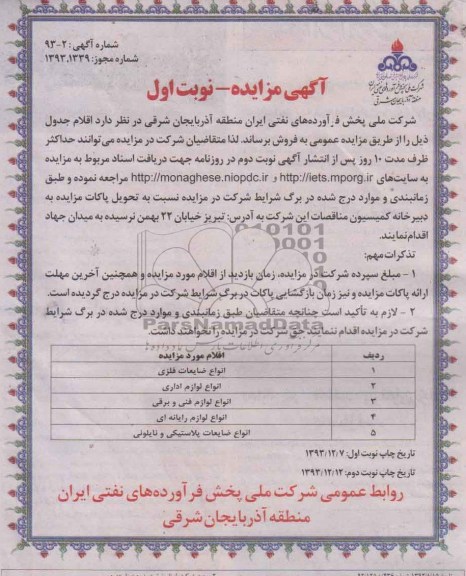 شماره آگهی: ۲-۹۳
شماره مجوز: ۱۳۹۳.۱۳۳۹
شرکت ملی پخش فرآورده‌های نفتی ایران
منطقه آذربایجان شرقی
آگهی مزایده - نوبت اول
شرکت ملی پخش فرآورده‌های نفتی ایران منطقه آذربایجان شرقی در نظر دارد اقلام جدول
ذیل را از طریق مزایده عمومی به فروش برساند. لذا متقاضیان شرکت در مزایده می‌توانند حداکثر
ظرف مدت ۱۰ روز پس از انتشار آگهی نوبت دوم در روزنامه جهت دریافت اسناد مربوط به مزایده
به سایت‌های http://iets.mporg.ir و http://monaghese.niopdc.ir مراجعه نموده و طبق
زمانبندی و موارد درج شده در برگ شرایط شرکت در مزایده نسبت به تحویل پاکات مزایده به
دبیرخانه کمیسیون مناقصات این شرکت به آدرس: تبریز خیابان ۲۲ بهمن نرسیده به میدان جهاد
اقدام نمایند.
تذکرات مهم:
۱ - مبلغ سپرده شرکت در مزایده، زمان بازدید از اقلام مورد مزایده و همچنین آخرین مهلت
ارائه پاکات مزایده و نیز زمان بازگشایی پاکات در برگ شرایط شرکت در مزایده درج گردیده است.
۲ - لازم به تأکید است چنانچه متقاضیان طبق زمانبندی و موارد درج شده در برگ شرایط
شرکت در مزایده اقدام ننمایند حق شرکت در مزایده را نخواهند داشت.
ParsNamadData
ردیف اقلام مورد مزایده
۱ انواع ضایعات فلزی
۲ انواع لوازم اداری
۳ انواع لوازم فنی و برقی
۴ انواع لوازم رایانه ای
۵ انواع ضایعات پلاستیکی و نایلونی
تاریخ چاپ نوبت اول: ۱۳۹۳/۱۲/۷
تاریخ چاپ نوبت دوم: ۱۳۹۳/۱۲/۱۲
روابط عمومی شرکت ملی پخش فرآورده‌های نفتی ایران
منطقه آذربایجان شرقی